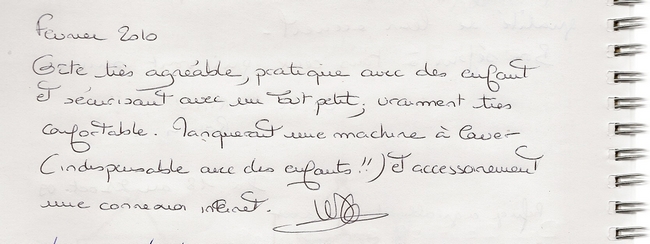 février 2010
Gîte très agréable, pratique avec des enfant
et sécurisant avec un tout petit, vraiment très
confortable. Manquerait une machine à laver
(indispensable avec des enfants !!) et accessoirement
une connexion internet.